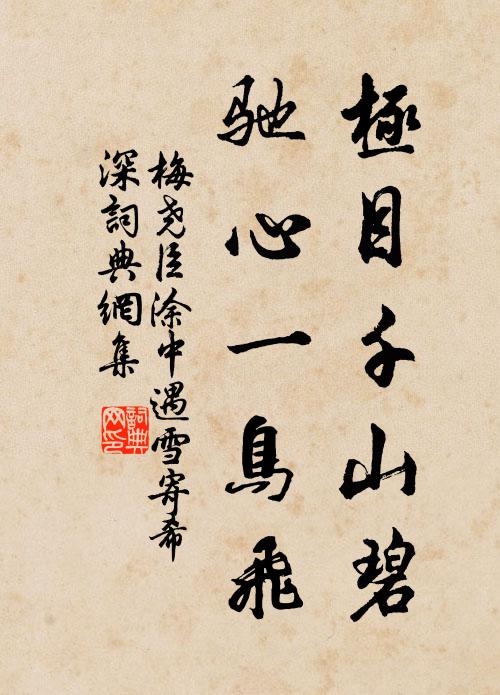 極目千山碧
馳心一鳥飛
梅尧臣涂中遇雪寄希
深詞典網集
詞典
网印